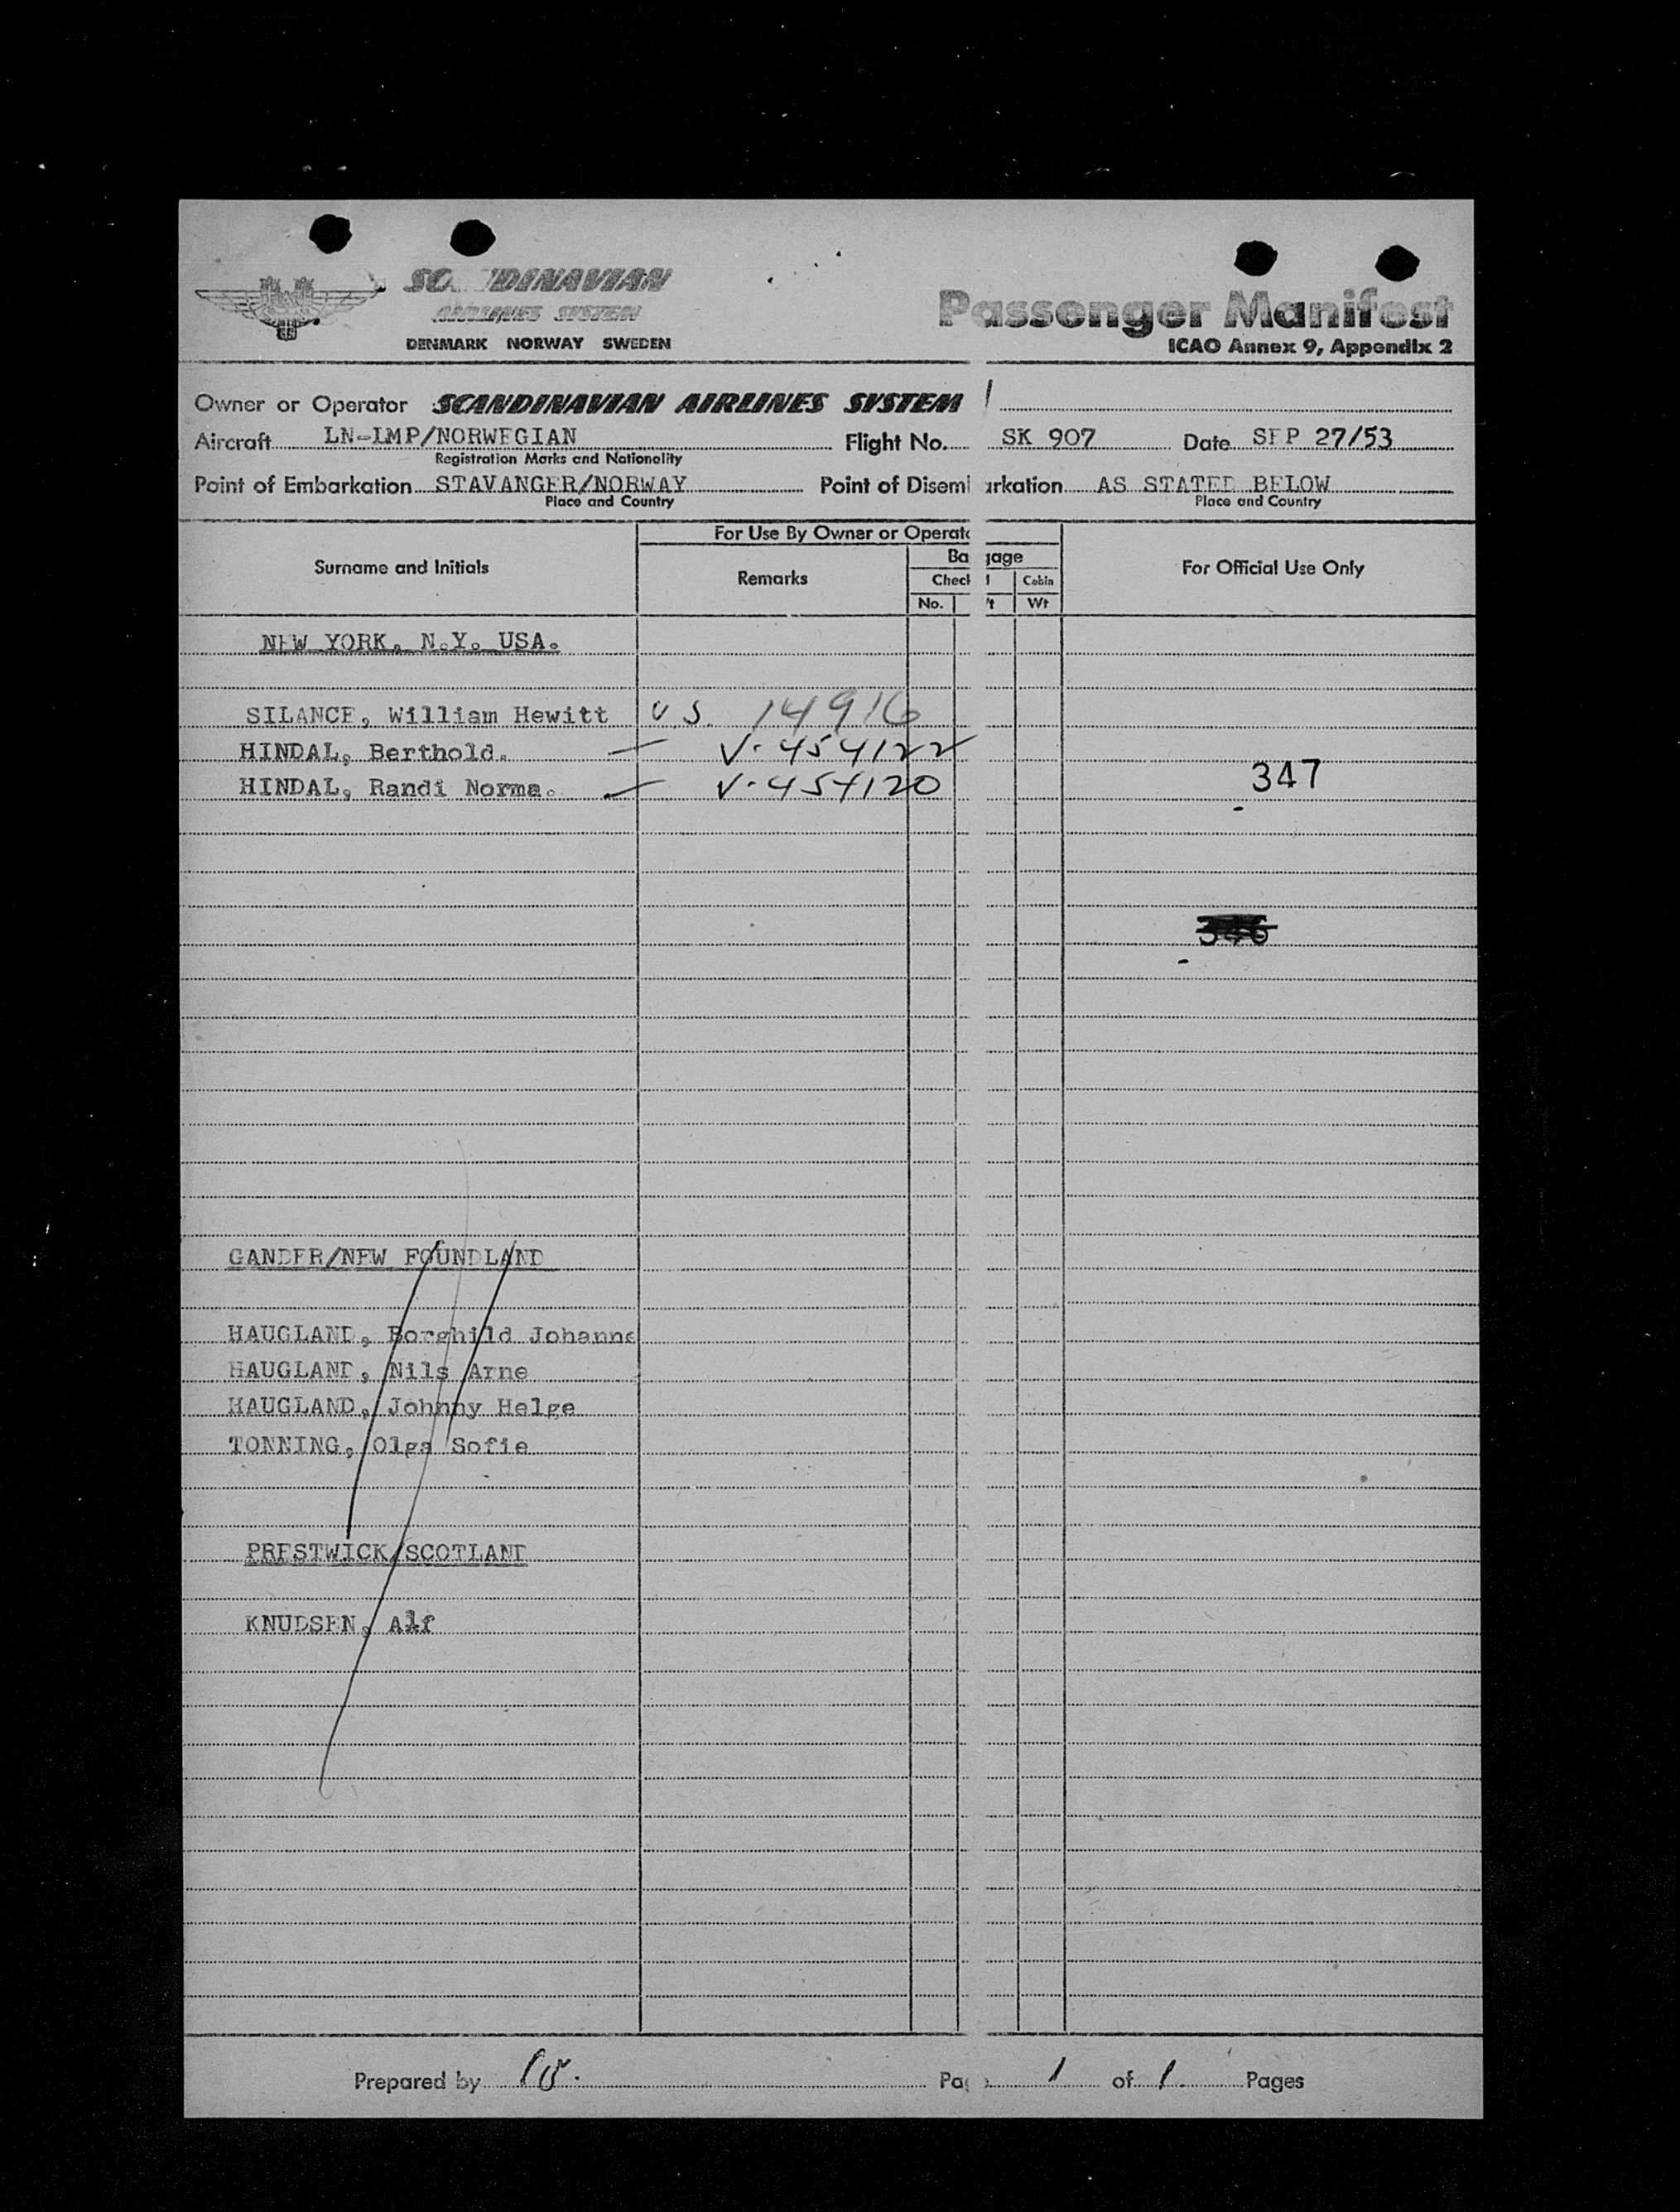 SC DINAVIAN
AIRLINES SYSTEM
DENMARK NORWAY SWEDEN
Passenger Manifest
ICAO Annex 9, Appendix 2
Owner or Operator SCANDINAVIAN AIRLINES SYSTEM
Aircraft LN-LMP/NORWEGIAN Flight No. SK 907 Date SEP 27/53
Registration Marks and Nationality
Point of Embarkation STAVANGER/NORWAY Point of Disem arkation AS STATED BELOW
Place and Country Place and Country
For Use By Owner or Operato
Surname and Initials Remarks Ba gage For Official Use Only
Check d Cabin
No. Wt Wt
NEW YORK, N.Y. USA.
SILANCE, William Hewitt U S. 14916
HINDAL, Berthold. — V-454122
HINDAL, Randi Norma. — V-454120 347
346
GANDER/NEW FOUNDLAND
HAUGLAND, Borghild Johanne
HAUGLAND, Nils Arne
HAUGLAND, Johnny Helge
TONNING, Olga Sofie
PRESTWICK/SCOTLAND
KNUDSEN, Alf
Prepared by Pag 1 of 1 Pages